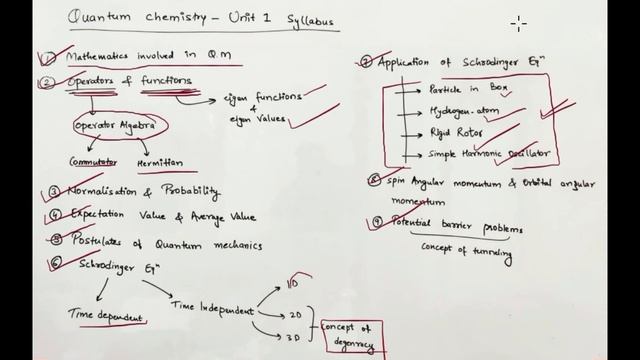 Quantum chemistry - Unit 1 Syllabus
① Mathematics involved in Q.M
② Operators & functions
eigen functions
&
eigen values
Operator Algebra
Commutator Hermitian
③ Normalisation & Probability
④ Expectation Value & Average Value
⑤ Postulates of Quantum mechanics
⑥ Schrodinger Eqⁿ
Time dependent
Time Independent
1D
2D
3D
concept of
degenracy
⑦ Application of Schrodinger Eqⁿ
Particle in Box
Hydrogen-atom
Rigid Rotor
Simple Harmonic Oscillator
⑧ spin Angular momentum & Orbital angular
momentum
⑨ Potential barrier problems
concept of tunneling